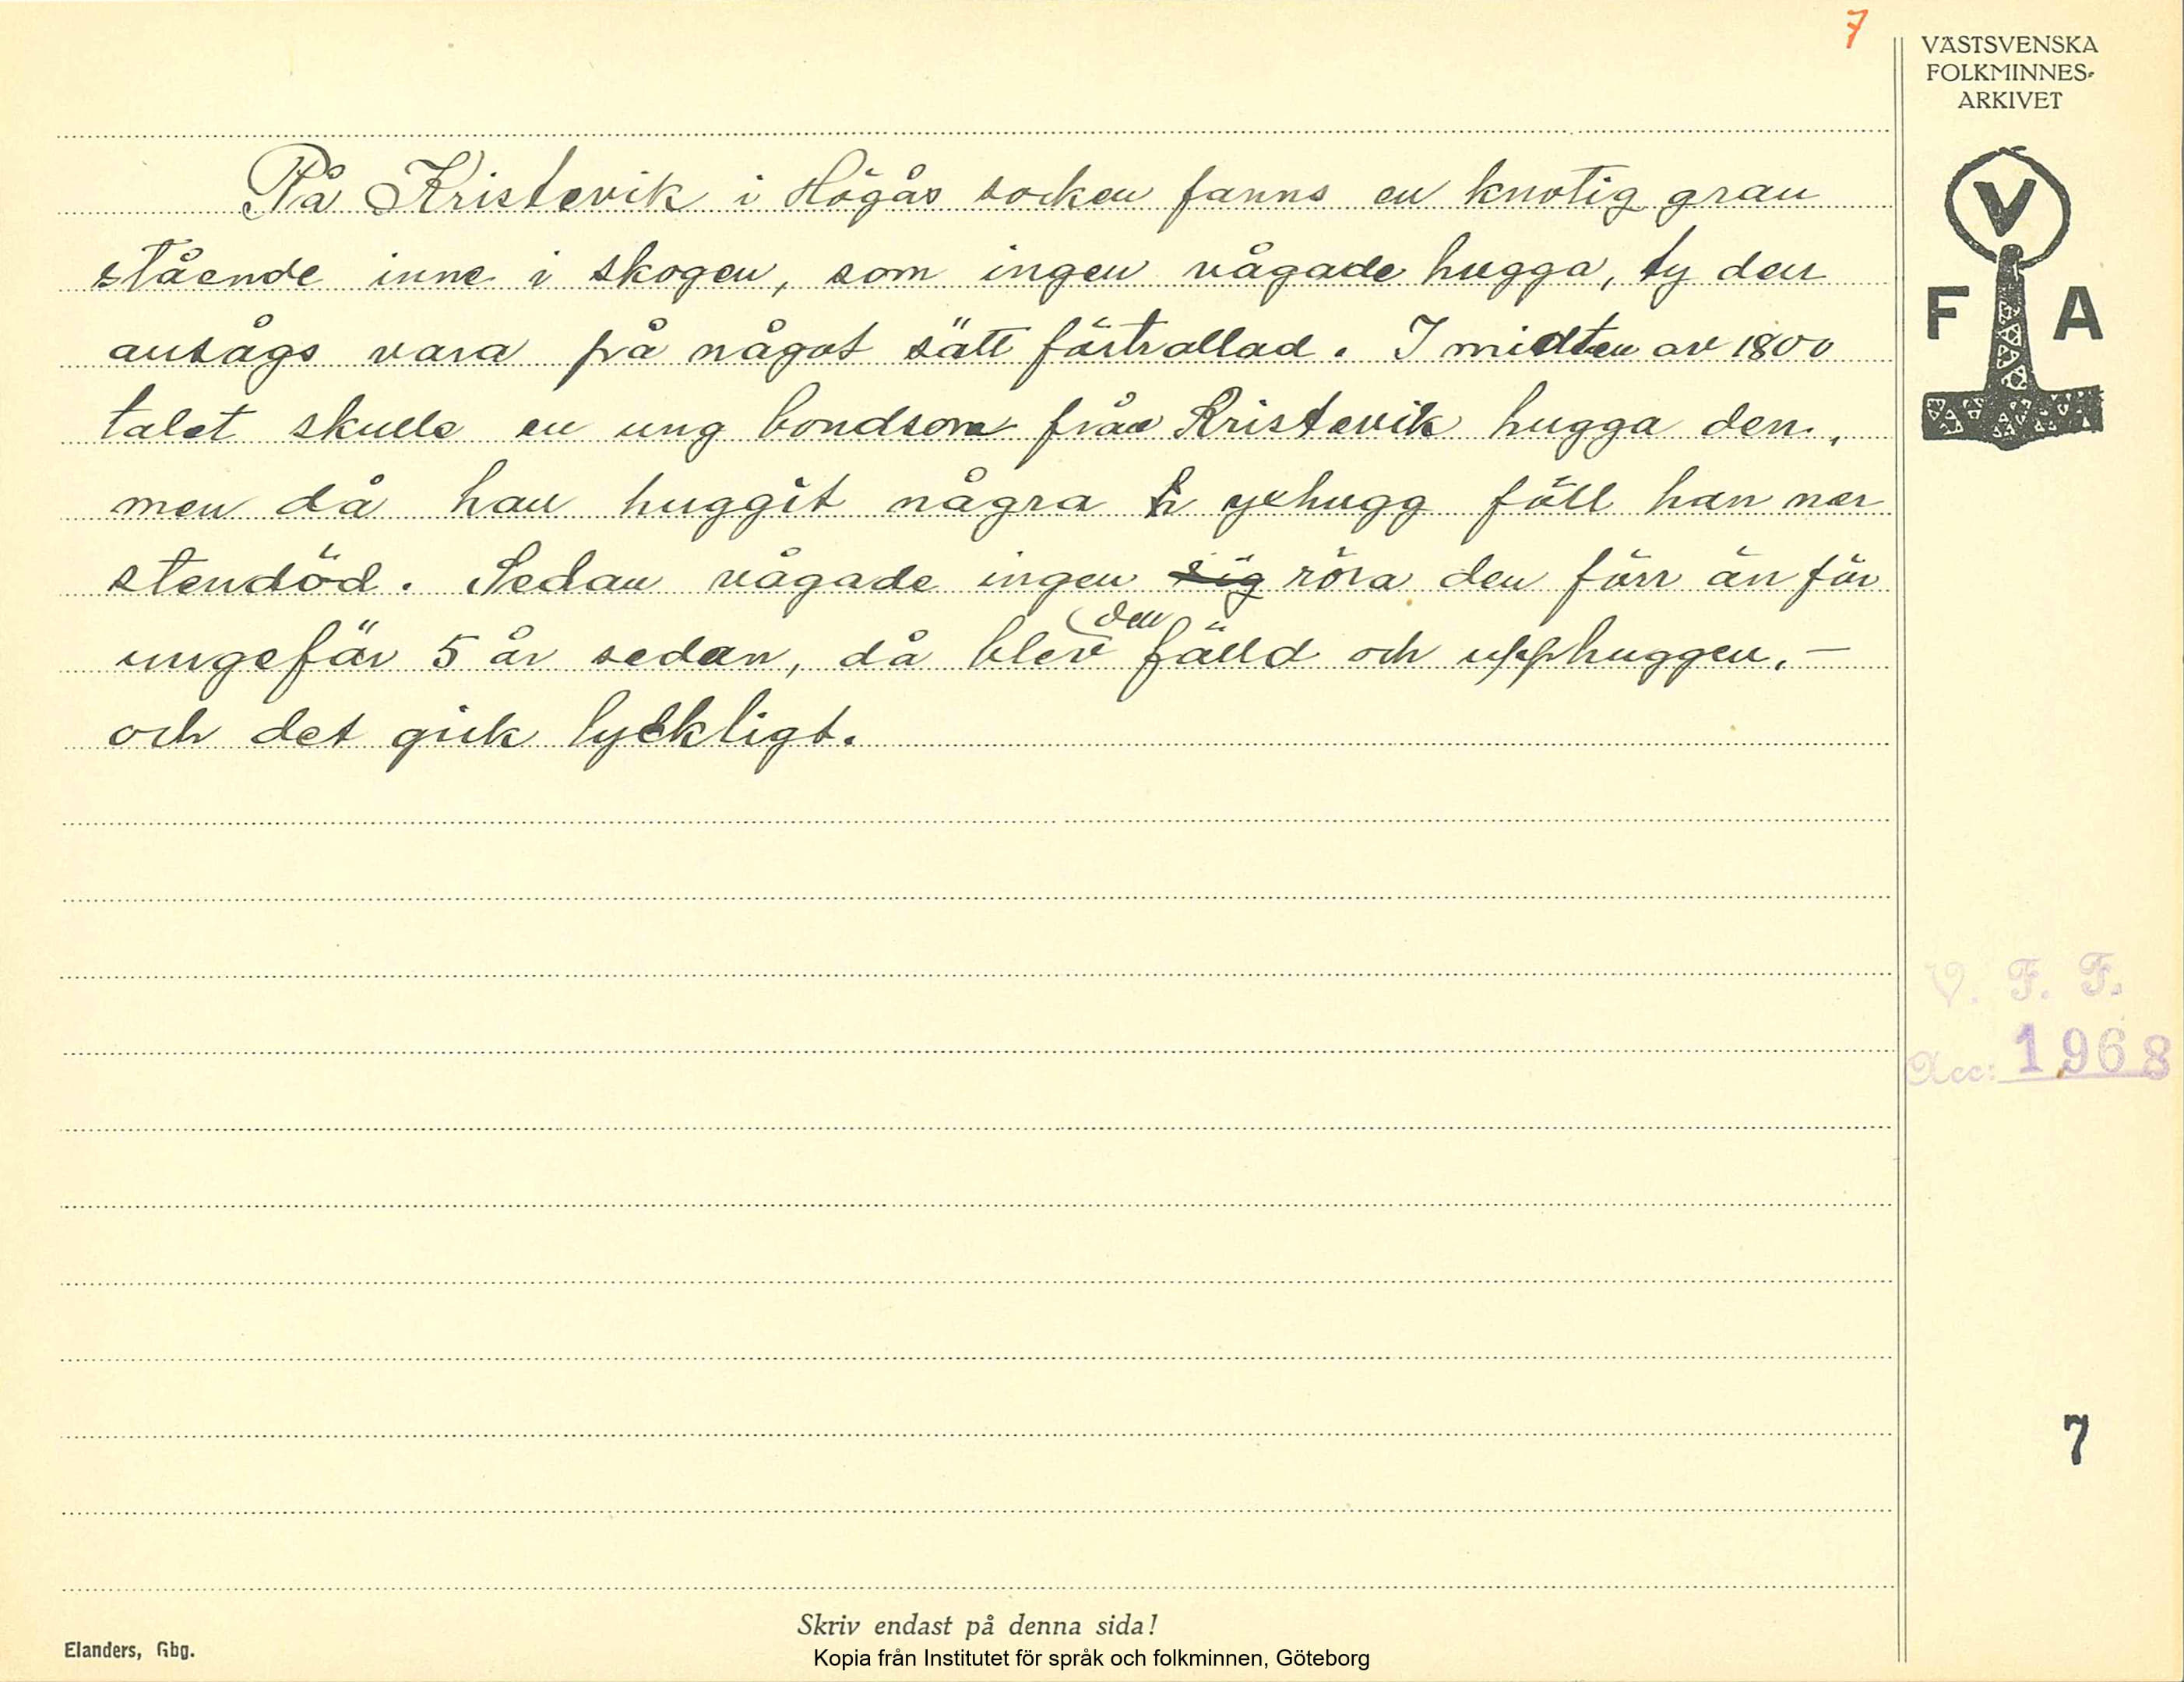 7
VÄSTSVENSKA
FOLKMINNES-
ARKIVET
V
F A
På Kristevik i Högås socken fanns en knotig gran
stående inne i skogen, som ingen vågade hugga, ty den
ansågs vara på något sätt förtrollad. I midten av 1800
talet skulle en ung bondson från Kristevik hugga den,
men då han huggit några h yxhugg föll han ner
stendöd. Sedan vågade ingen sig röra den förr än för
ungefär 5 år sedan, då blev den fälld och upphuggen, –
och det gick lyckligt.
V. F. F.
Acc: 1968
7
Skriv endast på denna sida!
Elanders, Gbg.
Kopia från Institutet för språk och folkminnen, Göteborg